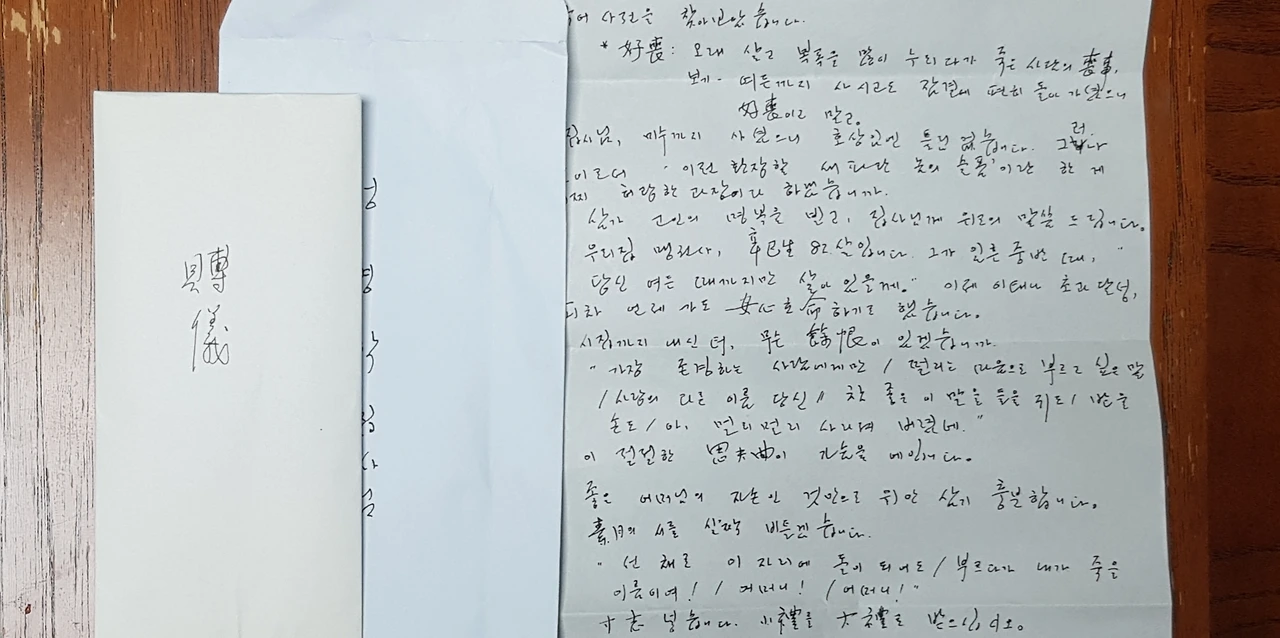 賻
儀
어 사전을 찾아보았습니다.
* 好喪: 오래 살고 복록을 많이 누리다가 죽은 사람의 喪事.
보기- 까지 사시고도 잠결에 편히 돌아가셨으니
好喪이라고 말고.
집사님, 미수까지 사셨으니 호상임엔 틀림 없습니다. 그러나
이런 환장할 새파란 놈의 슬픔'이란 한 게
처량한 과장이라 하겠습니까.
삼가 고인의 명복을 빌고, 집사님께 위로의 말씀 드립니다.
우리집 맹권사, 辛巳生 82살입니다. 그가 일흔 중반 때, "
당신 여든 때까지만 살아 있을께." 이제 이태나 초과 달성,
피차 언제 가도 安心 命하기로 했습니다.
시집까지 내신 터, 무슨 餘恨이 있겠습니까.
"가장 존경하는 사람에게만 / 떨리는 마음으로 부르고 싶은 말
/ 사랑의 다른 이름 당신 // 참 좋은 이 말을 들을 귀도 / 받을
손도 / 아, 멀리멀리 사라져 버렸네."
이 절절한 思夫曲이 가슴을 에입니다.
좋은 어머님의 자손인 것만으로 위안 삼기 충분합니다.
素月의 시를 살짝 비틀겠습니다.
"선 채로 이 자리에 돌이 되어도 / 부르다가 내가 죽을
이름이여! / 어머니! / 어머니!"
寸志 넣습니다. 小禮를 大禮로 받으십시오.